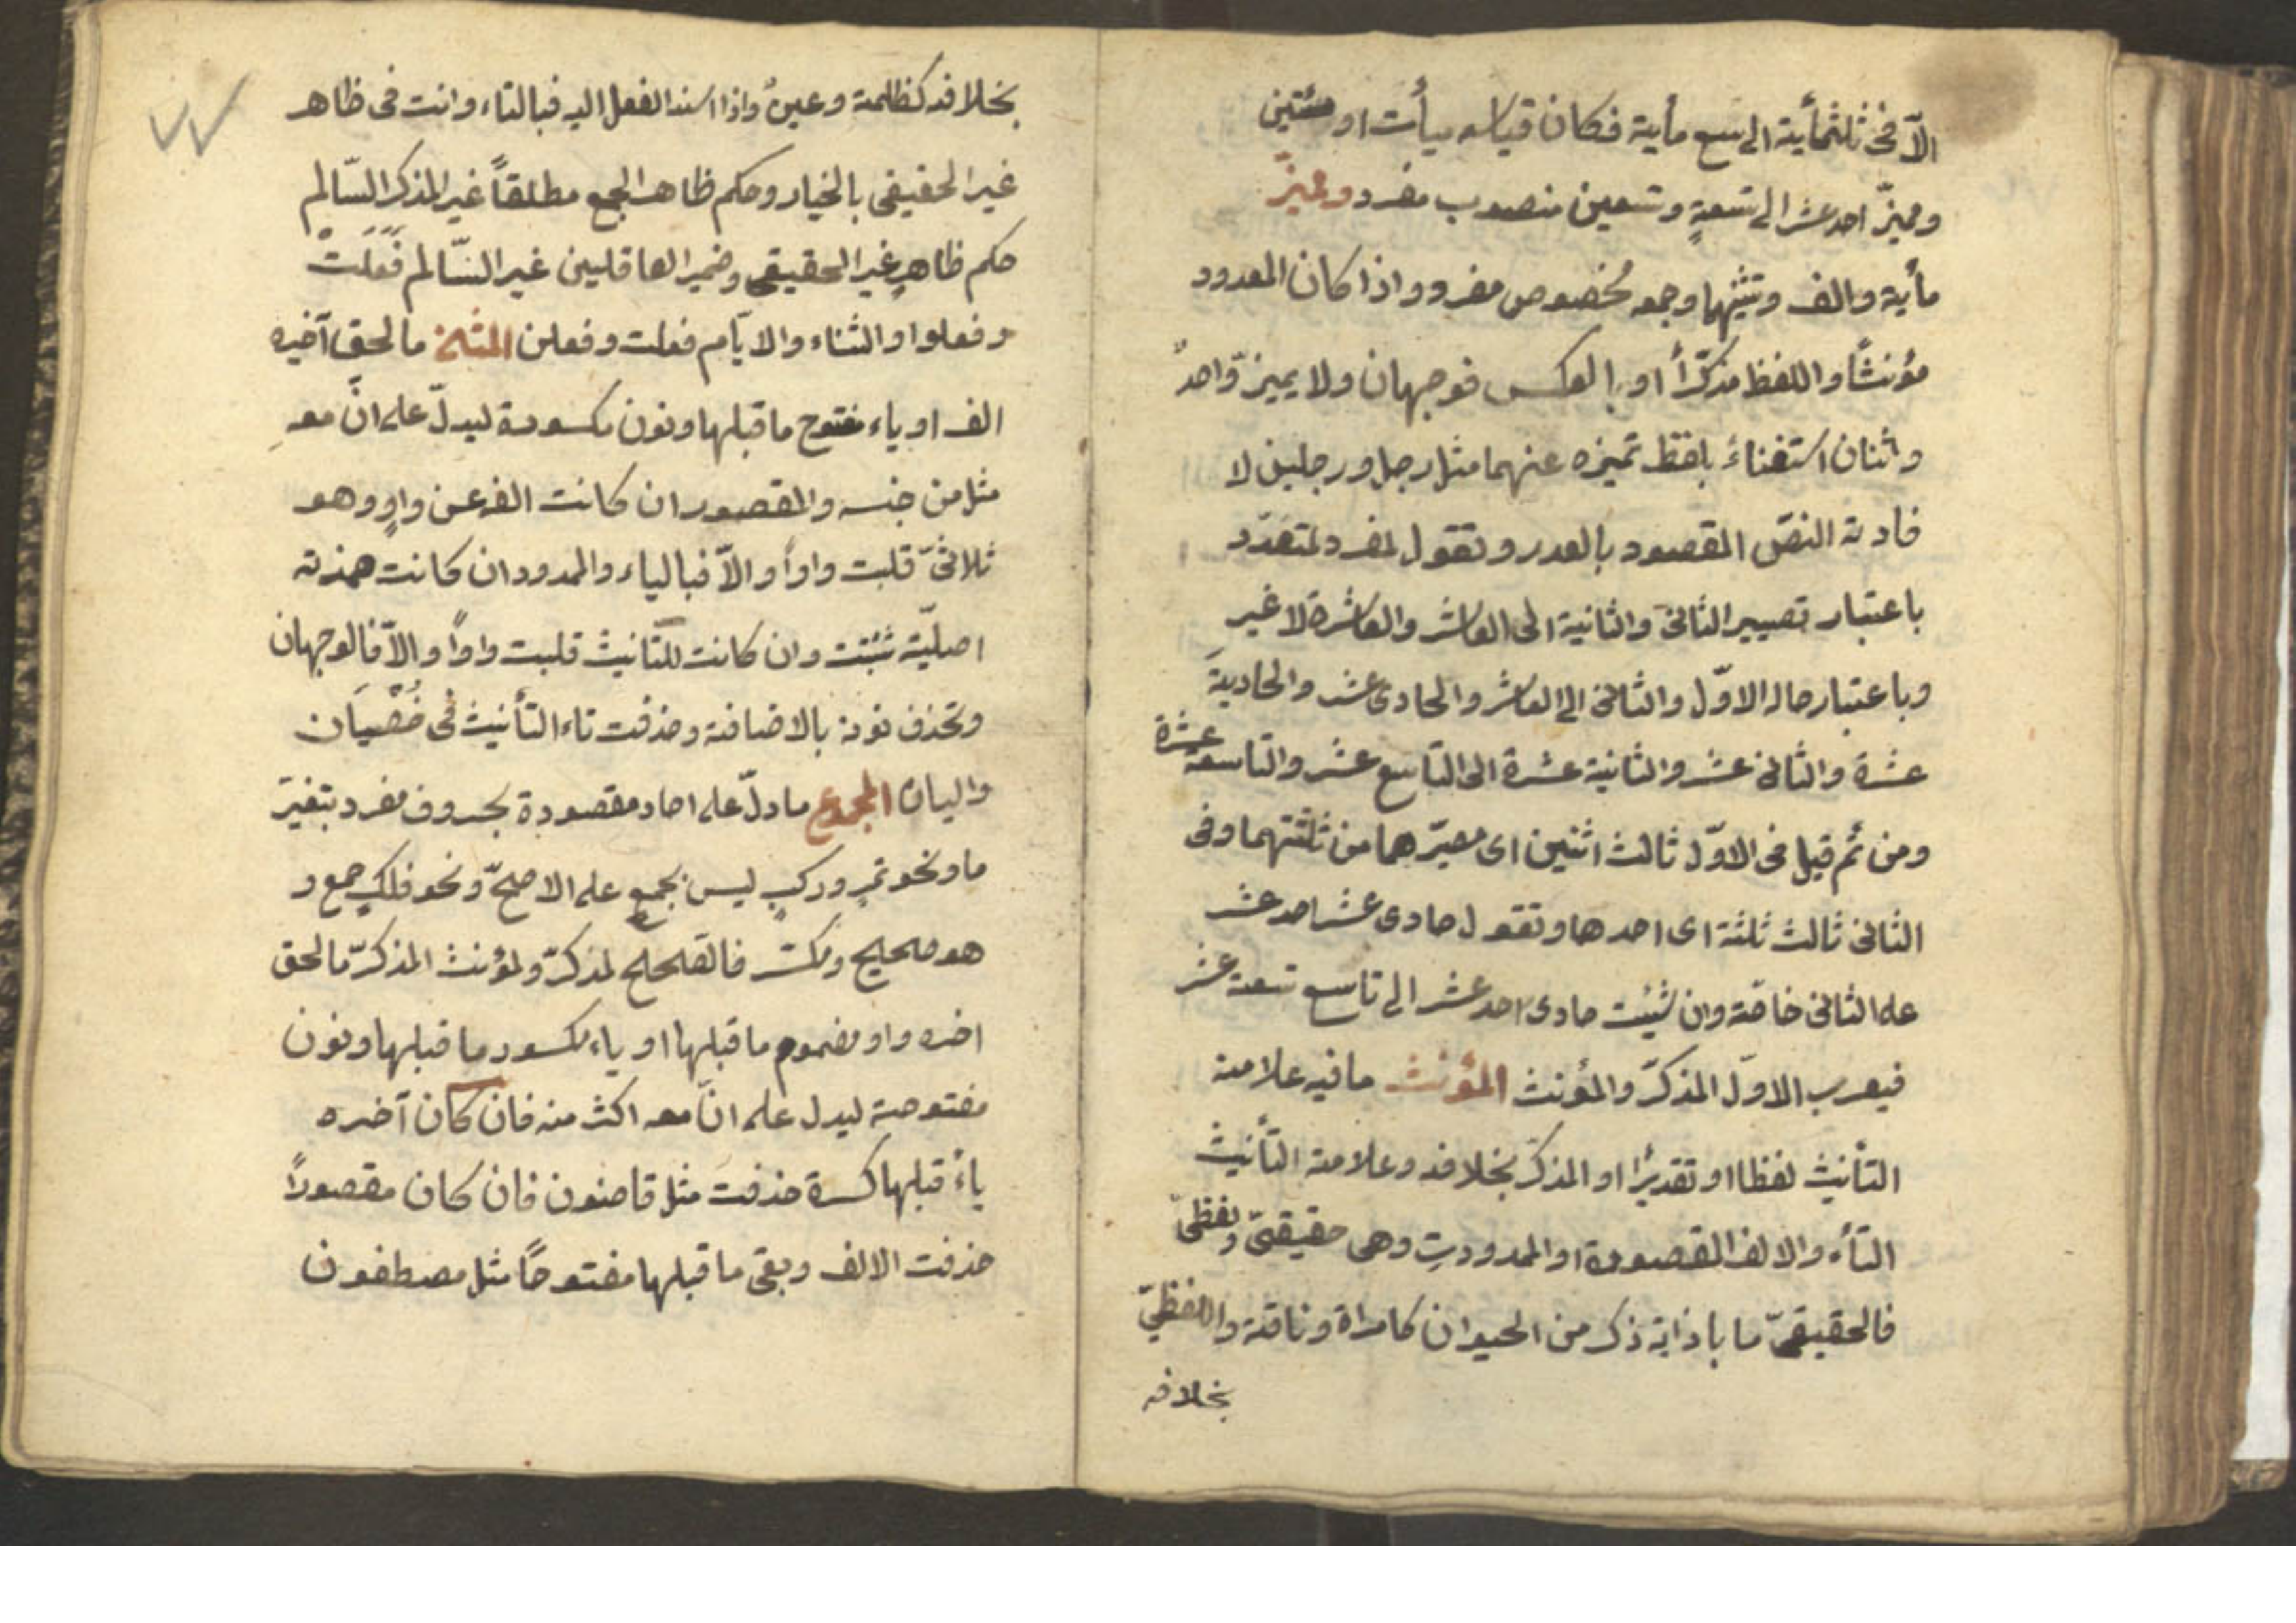 الّا فى ثلثمأية الى تسع مأية فكان قياسه ميأت او مئتين
ومميّز احد عشر الى تسعةٍ وتسعين منصوب مفرد ومميّز
مأية والف وتثنيتهما وجمعه مخصوص مفرد واذا كان المعدود
مؤنثًا واللفظ مذكّرًا او بالعكس فوجهان ولا يميز واحدٌ
واثنان استغناءً بلفظ تميزه عنهما مثل رجل ورجلين لا
فادته النصّ المقصود بالعدد وتقول لمفرد لمتعدّد
باعتبار تصيير الثانى والثانية الى العاشر والعاشرة لا غير
وباعتبار حاله الاوّل والثانى الى العاشر والحادى عشر والحادية
عشرة والثانى عشر والثانية عشرة الى التاسع عشر والتاسعة عشرة
ومن ثم قيل فى الاوّل ثالث اثنين اى مصيّرهما من ثلثتهما وفى
الثانى ثالث ثلثة اى احدها وتقول حادى عشر احد عشر
على الثانى خاصّة وان شئت حادى احد عشر الى تاسع تسعة عشر
فيعرب الاوّل المذكّر والمؤنث المؤنث ما فيه علامة
التأنيث لفظا او تقديرًا او المذكّر بخلافه وعلامة التأنيث
التأء والالف المقصورة او الممدودتِ وهى حقيقىّ ولفظىّ
فالحقيقىّ ما باذائه ذكر من الحيوان كامراة وناقة واللفظيّ
بخلافه
بخلافه كظلمة وعينٌ واذا اسند الفعل اليه فبالتاء وانت فى ظاهر
غير الحقيقى بالخيار وحكم ظاهر الجمع مطلقاً غير المذكر السّالم
حكم ظاهر غير الحقيقى وضمير العاقلين غير السّالم فَعَلَتْ
وفعلوا والنساء والايّام فعلت وفعلن المثنى ما لحق آخره
الف او ياء مفتوح ما قبلها ونون مكسورة ليدلّ على انّ معه
مثله من جنسه والمقصور ان كانت الفه عن واوٍ وهو
ثلاثىّ قلبت واوًا والّا فبالياء والممدود ان كانت همزته
اصليّة ثبتت وان كانت للتانيث قلبت واوًا والّا فالوجهان
وتحذف نونه بالاضافة وحذفت تاء التأنيث فى خُصْيَان
واليان المجموع ما دلّ على احاد مقصودة بحروف مفرد بتغيّر
ما ونحو تمرٍ وركبٍ ليس بجمع على الاصحّ ونحو فلك جمع و
هو صحيح ومكسّر فالصّحيح لمذكّر ولمؤنث المذكّر ما لحق
اخره واو مضموم ما قبلها او ياء مكسور ما قبلها ونون
مفتوحة ليدل على انّ معه اكثر منه فان كان آخره
ياءً قبلها كسرة حذفت مثل قاضون فان كان مقصورًا
حذفت الالف وبقى ما قبلها مفتوحًا مثل مصطفون